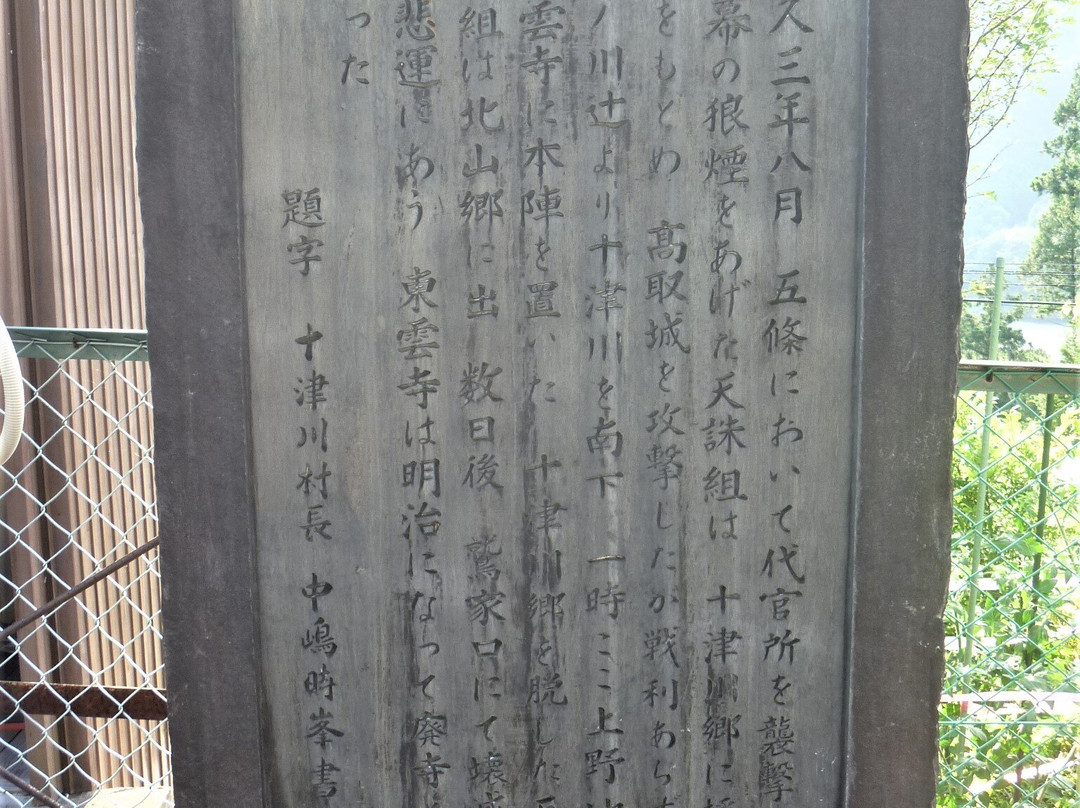 久三年八月 五條において代官所を襲撃
幕の狼煙をあげた天誅組は 十津川郷に
をもとめ 高取城を攻撃したが戦利あらず
ノ川辻より十津川を南下 一時ここ上野
雲寺に本陣を置いた 十津川郷を脱した
組は北山郷に出 数日後 鷲家口にて壊
悲運にあう 東雲寺は明治になって廃寺
った
題字 十津川村長 中嶋時峯書